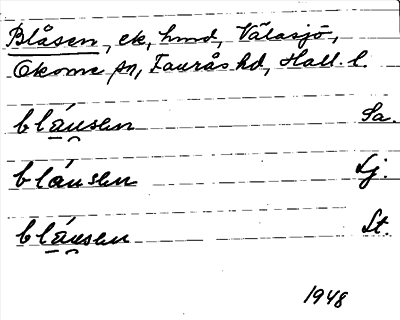 Blåsen, ek, hmd, Välasjö,
Okome sn, Faurås hd, Hall. l.
bláu̯sen Sa.
bláusen Lj.
bláu̯sen St.
1948